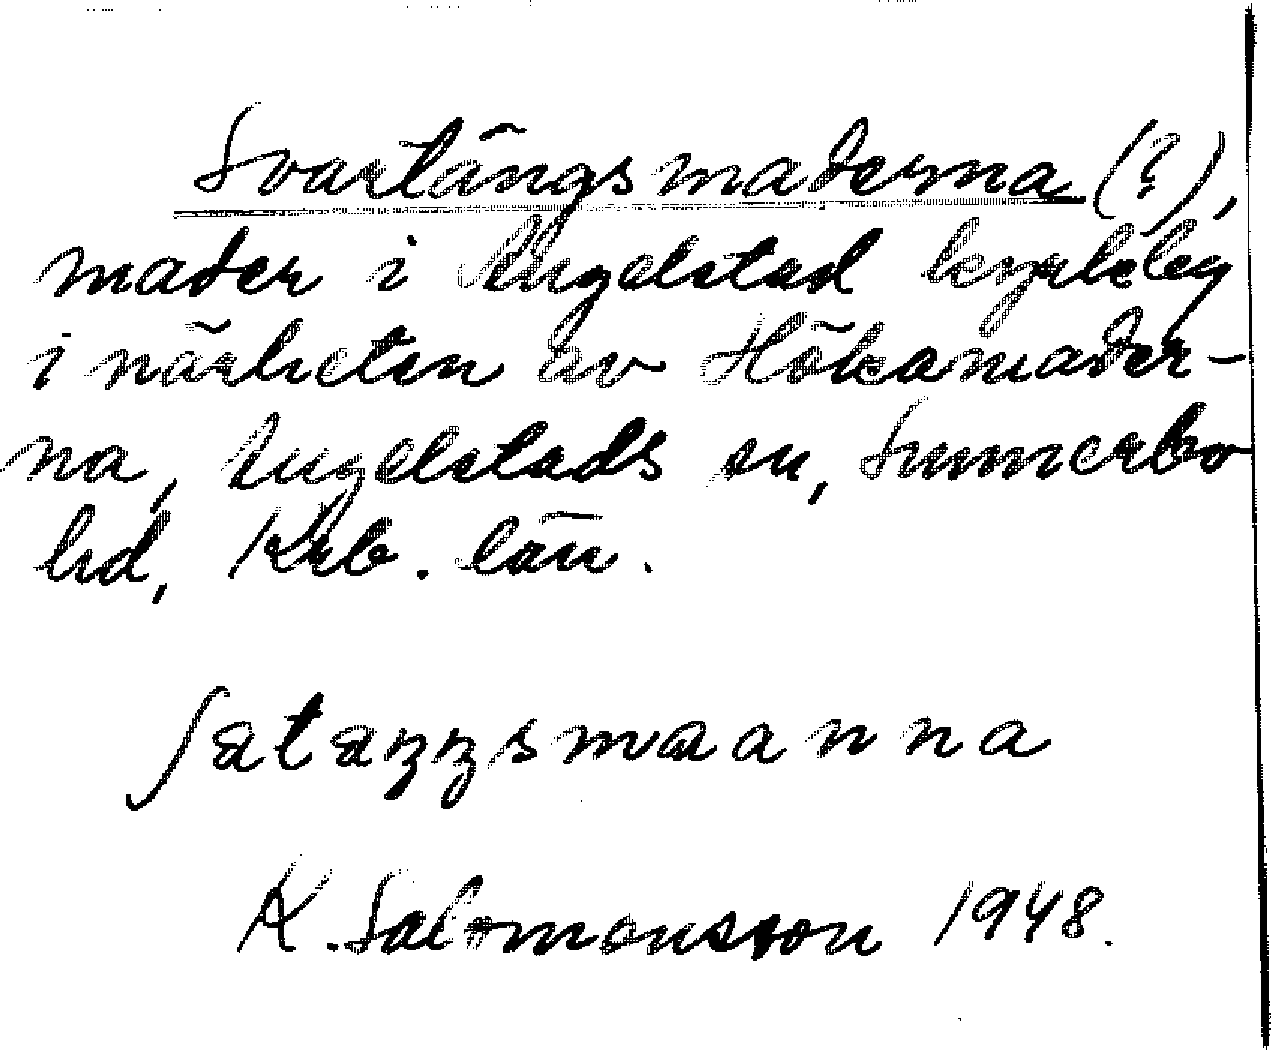 Svartängsmaderna (?),
mader i Angelstad kyrkby
i närheten av Hökamader-
na, Angelstads sn, Sunnerbo
hd, Krb. län.
ʃatæŋŋsmaanna
K. Salomonsson 1948.